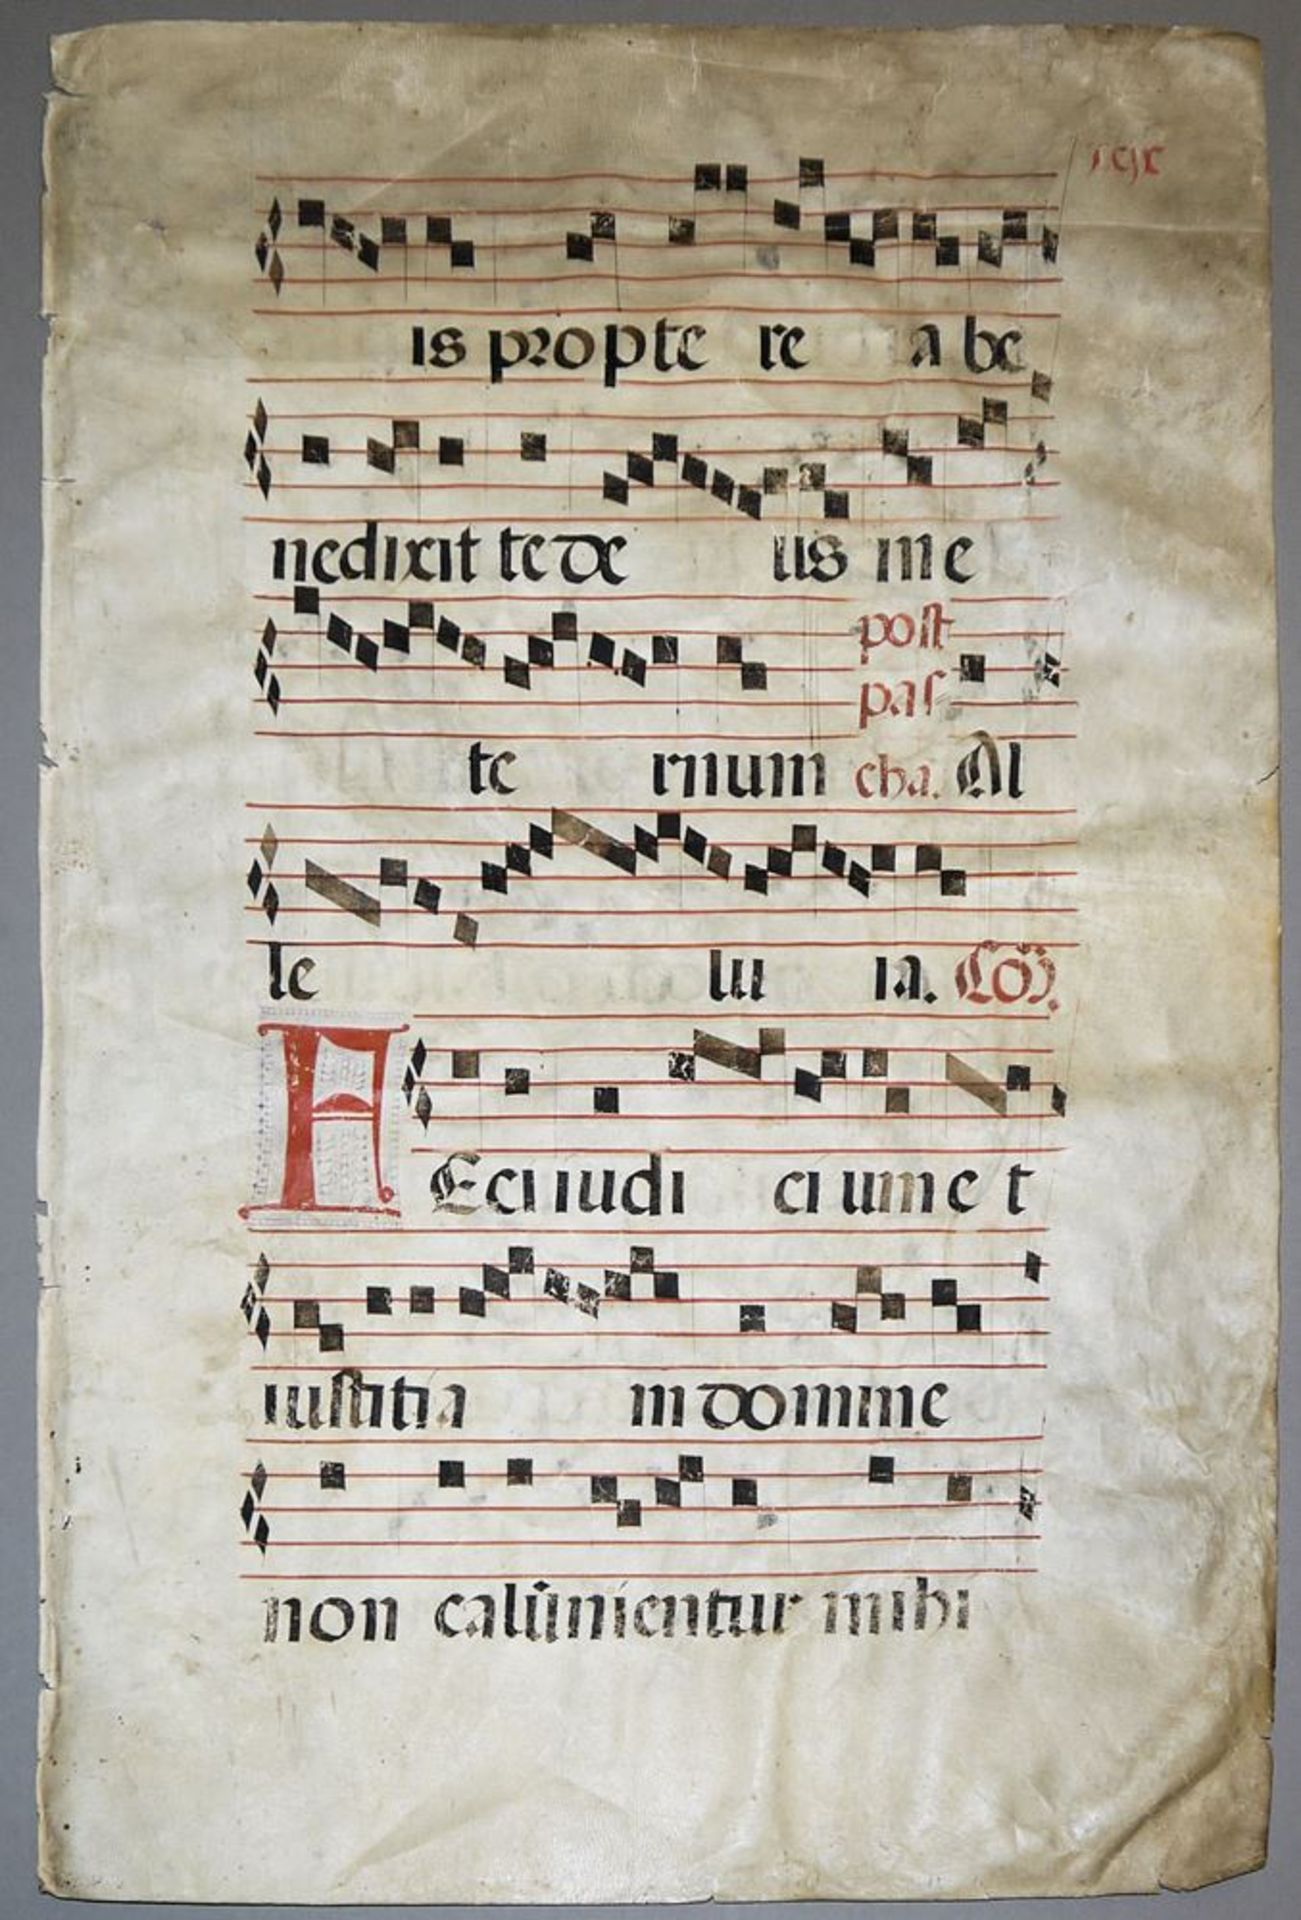 is propte re a be
nedixit te de us in e
post
pas
te rnum cha. Al
le lu ia. Cōɔ.
F Eci iudi ci um e t
iustitia in domine
non calūnientur mihi